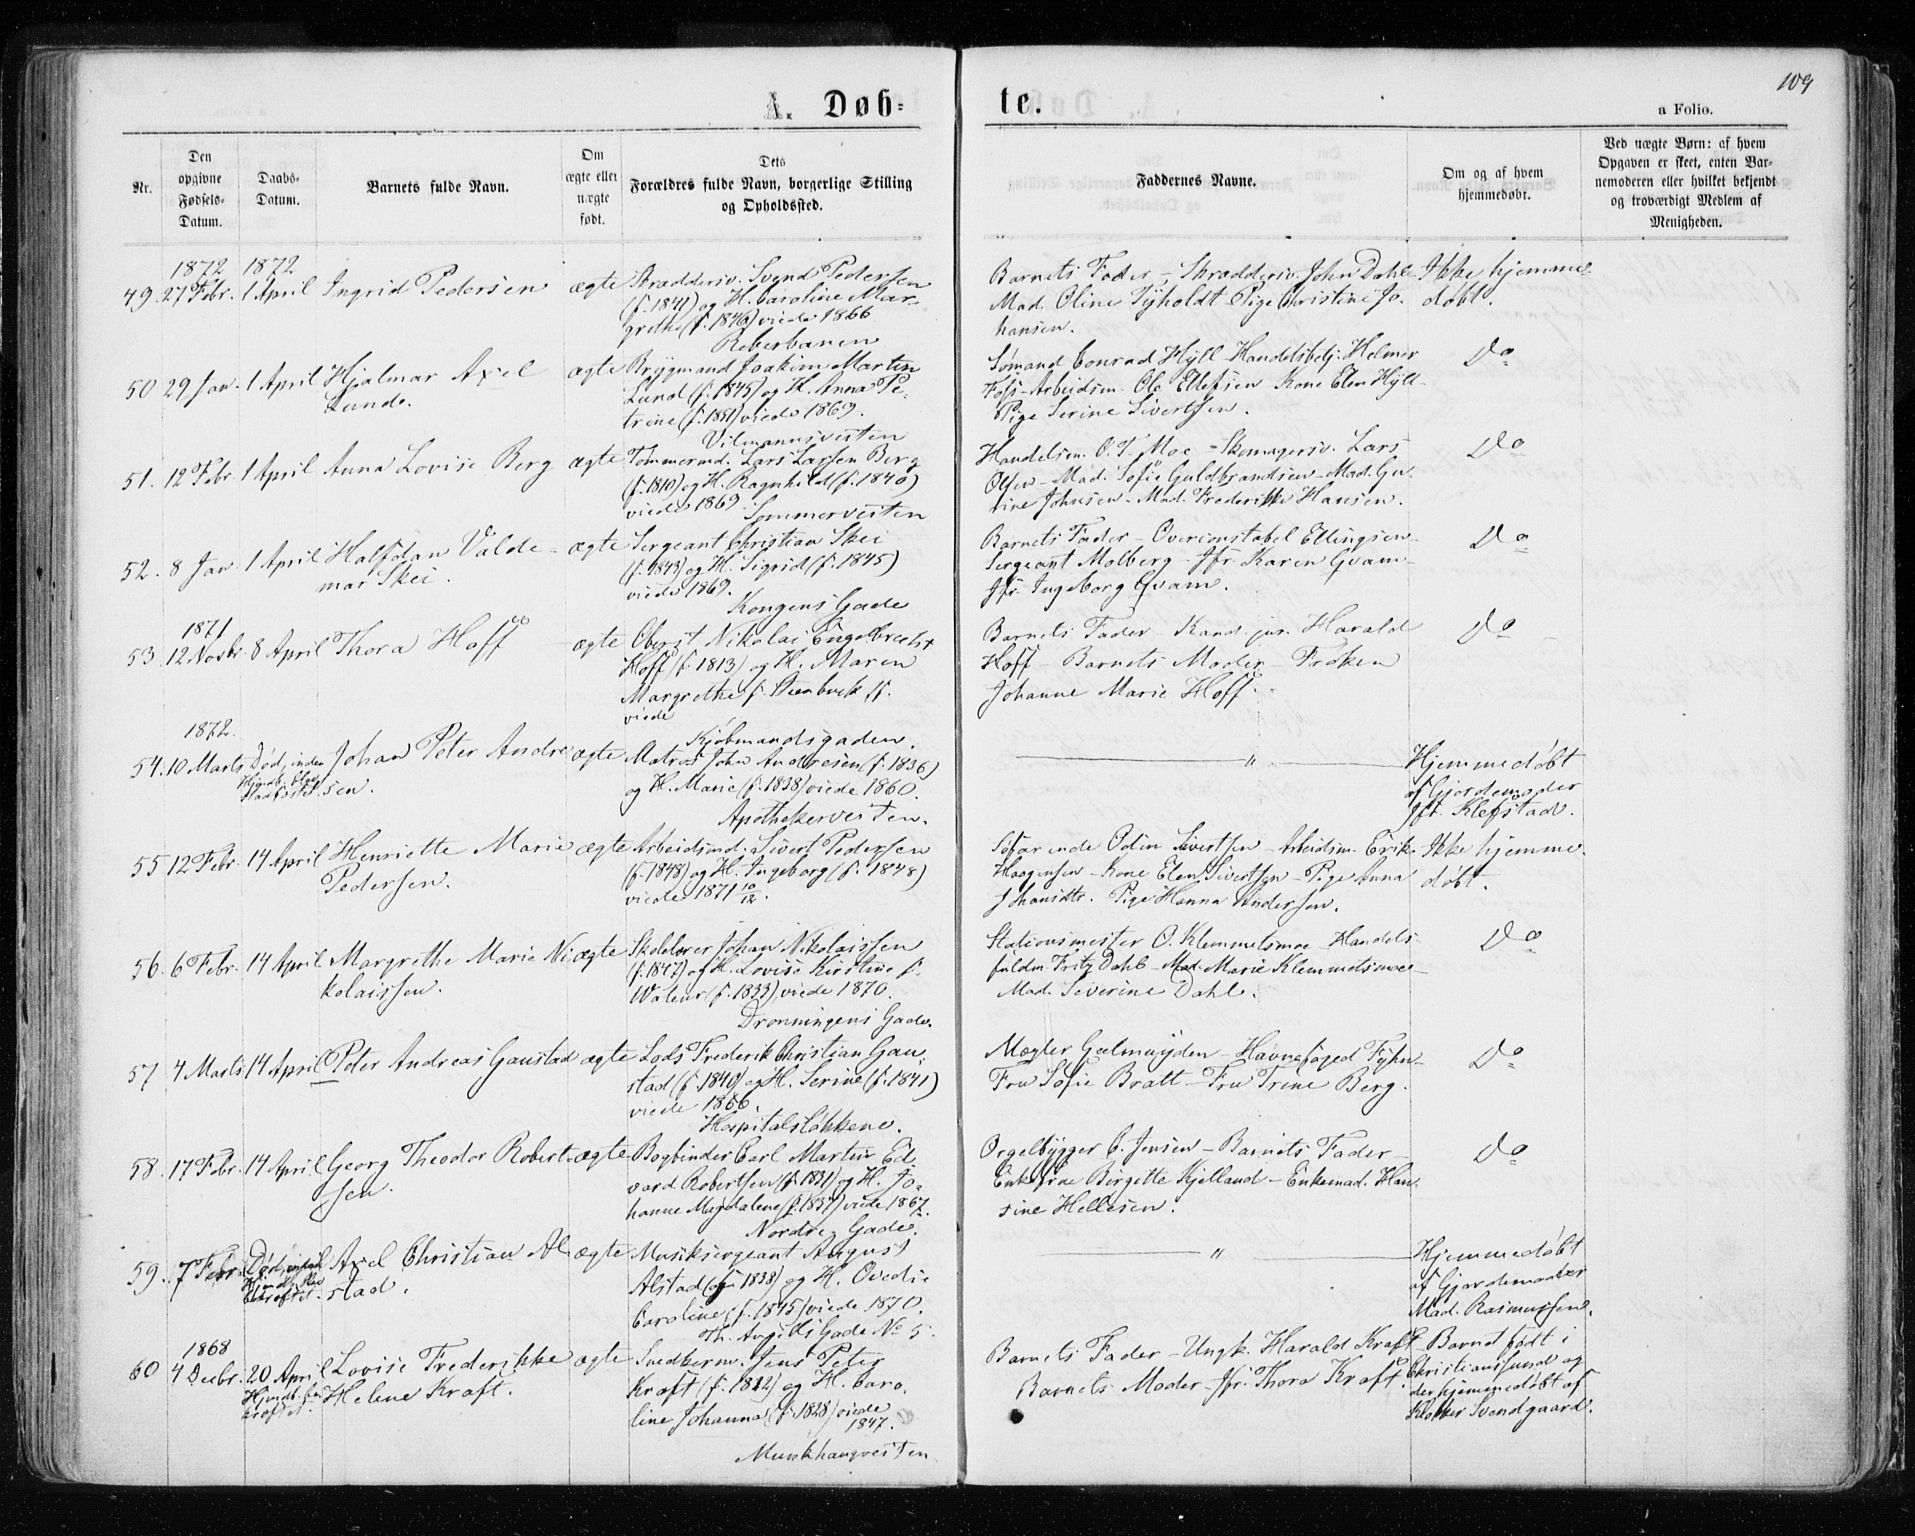 109
A. Døb-
te.
a Folio.
Nr.
Den
opgivne
Fødsels-
Datum.
Daabs-
Datum.
Barnets fulde Navn.
Om
ægte eller
uægte
født.
Dets
Forældres fulde Navn, borgerlige Stilling
og Opholdssted.
Faddernes Navne.
Om og af hvem
hjemmedøbt.
Ved uægte Børn: af hvem
Opgaven er skeet, enten Bar-
nemoderen eller hvilket bekjendt
og troværdigt Medlem af
Menigheden.
1872 1872
49. 27 Febr. 1 April Ingrid Pedersen ægte Skræddersv. Svend Pedersen
(f. 1841) og H. Caroline Mar-
grethe (f. 1846) viede 1866
Reberbanen
Barnets Fader - Skræddersv. John Dahl -
Mad. Oline Tyholdt - Pige Christine Jo-
hansen.
Ikke hjemme-
døbt.
50 29 Jan. 1 April Hjalmar Axel ægte Brygmand Joakim Martin
Lunde. Lund (f. 1845) og H. Anna Pe-
trine (f. 1851) viede 1869.
Vilmannsveiten
Sømand Conrad Hÿll - Handelsbetj. Helmer
Foss - Arbeidsm. Ole Ellefsen - Kone Elen Hÿll -
Pige Serine Sivertsen.
Do
51. 12 Febr. 1 April Anna Lovise Berg ægte Tømmermd. Lars Larsen Berg
(f. 1810) og H. Ragnhild (f. 1840)
viede 1869.
Sommerveiten
Handelsm. O. T. Moe - Skomagersv. Lars
Olsen - Mad. Sofie Guldbrandsen - Mad. Gu-
rine Johnsen - Mad. Frederikke Hansen.
Do
52. 8 Jan. 1 April Halfdan Valde- ægte Sergeant Christian Skei
mar Skei. (f. 1843) og H. Sigrid (f. 1845)
viede 1869.
Kongens Gade
Barnets Fader - Overconstabel Ellingsen -
Sergeant Molberg - Jfr. Karen Qvam -
Jfr. Ingeborg Qvam.
Do
1871
53. 12 Novbr. 8 April Thora Hoff ægte Oberst Nikolai Engelbrecht
Hoff (f. 1813) og H. Maren
Margrethe f. Steenbuck
viede
Kjøbmandsgaden.
Barnets Fader - Kand. jur. Harald
Hoff - Barnets Moder - Frøken
Johanne Marie Hoff.
Do
1872.
54. 10 Marts Død, inden Johan Peter Andre- ægte Matros John Andresen (f. 1836)
sen. og H. Marie (f. 1838) viede 1860.
Apothekerveiten.
"
Hjemmedøbt
af Gjordemoder
Jfr. Klefstad.
55 12 Febr. 14 April Henriette Marie ægte Arbeidsmd. Sivert Pedersen
Pedersen. (f. 1848) og H. Ingeborg (f. 1848)
viede 1871 10/12
Søfarende Odin Sivertsen - Arbeidsm. Erik
Haagensen - Kone Elen Sivertsen - Pige Anna
Johansdtr. Pige Hanna Andersen.
Ikke hjemme-
døbt.
56. 6 Febr. 14 April Margrethe Marie Ni- ægte Skolelærer Johan Nikolaissen
kolaissen. (f. 1847) og H. Lovise Kirstine f.
Waleur (f. 1833) viede 1870.
Dronningens Gade.
Stationsmester O. Klemmetsmoe - Handels-
fuldm. Fritz Dahl - Mad. Marie Klemmetsmoe -
Mad. Severine Dahl.
Do
57 4 Marts 14 April Peter Andreas Gaustad ægte Lods Frederik Christian Gau-
stad (f. 1840) og H. Serine (f. 1841)
viede 1866.
Hospitalsløkkene.
Mægler Gelmuÿden - Havnefoged Fÿhn -
Fru Sofie Bratt - Fru Trine Berg.
Do
58. 17 Febr. 14 April Georg Theodor Robert- ægte Bogbinder Carl Martin Ed-
sen. vard Robertsen (f. 1831) og H. Jo-
hanne Magdalene (f. 1837) viede 1867.
Nordre Gade.
Orgelbygger C. Jensen - Barnets Fader -
Enkefrue Birgitte Kjelland - Enkemad. Han-
sine Hellesen.
Do
59. 7 Febr. Axel Christian Al- ægte Musiksergeant August
stad. Alstad (f. 1838) og H. Ovedie
Caroline (f. 1845) viede 1870.
Th. Angells Gade No 5.
"
Hjemmedøbt
af Gjordemoder
Mad. Rasmussen.
1868
60 4 Decbr. 20 April Lovise Frederikke ægte Snedkerm. Jens Peter
Helene Kraft. Kraft (f. 1822) og H. Caro-
line Johanna (f. 1828) viede
1847.
Munkhaugveiten
Barnets Fader - Ungk. Harald Kraft -
Barnets Moder - Jfr. Thora Kraft.
Barnet født i
Christianssund og
der hjemmedøbt af
Klokker Svendgaard.